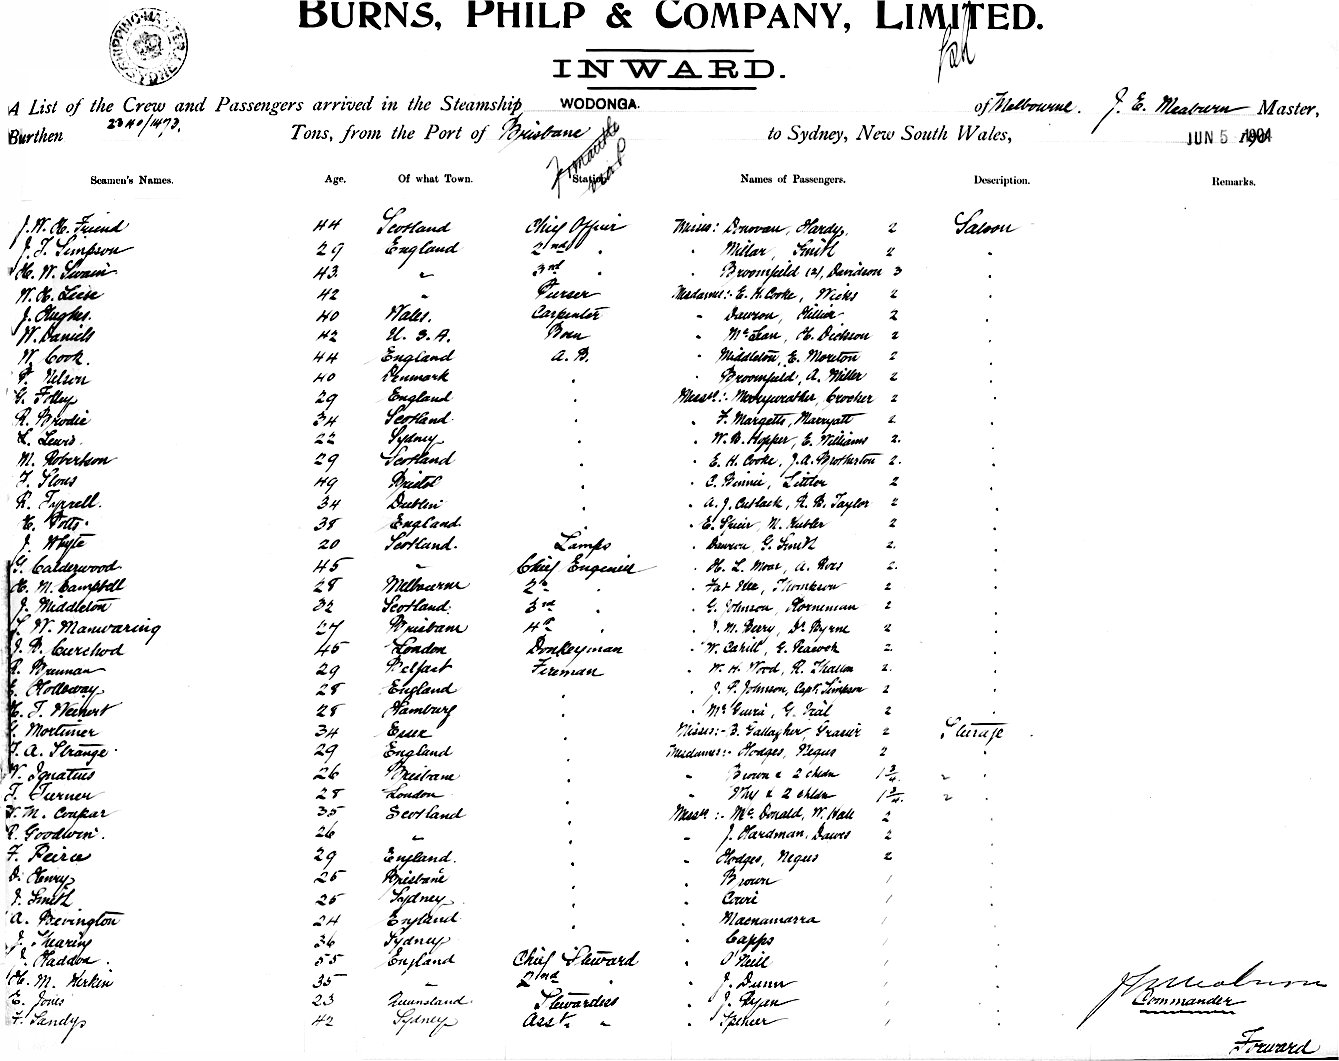 BURNS, PHILP & COMPANY, LIMITED.
SHIPPING MASTER SYDNEY
INWARD.
A List of the Crew and Passengers arrived in the Steamship WODONGA. of Melbourne. J. E. Meaburn Master,
Burthen 2340/1473. Tons, from the Port of Brisbane to Sydney, New South Wales, JUN 5 1904
Fremantle
Seamen's Names. Age. Of what Town. Station. Names of Passengers. Description. Remarks.
J. W. H. Friend 44 Scotland Chief Officer Misses: Donovan, Hardy, 2 Saloon
J. T. Simpson 29 England 2nd " " Millar, Smith 2 "
H. W. Swain 43 " 3rd " " Broomfield (2), Davidson 3 "
W. H. Leese 42 " Purser Madames:- E. H. Cooke, Wicks 2 "
J. Hughes. 40 Wales. Carpenter " Dawson, Hillier 2 "
W. Daniels 42 U. S. A. Bosn " McLean, H. Dickson 2 "
W. Cook. 44 England A. B. " Middleton, E. Moreton 2 "
Nelson 40 Denmark " " Broomfield, A. Miller 2 "
G. Folley 29 England " Messrs:- Merryweather, Crocker 2 "
R. Brodie 34 Scotland " " F. Margetts, Marryatt 2 "
L. Lewis 22 Sydney " " W. B. Hopper, E. Williams 2. "
M. Robertson 29 Scotland " " E. H. Cooke, J. A. Brotherton 2. "
49 Bristol " " C. Binnie, Littler 2 "
R. Tyrrell. 34 Dublin " " A. J. Cutlack, R. B. Taylor 2 "
Potts. 38 England " " E. Speir, N. Kubler 2 "
J. Whyte 20 Scotland. Lamps " Dawson, G. Smith 2. "
G. Calderwood 45 " Chief Engineer " H. L. Moar, A. Ross 2. "
H. M. Campbell 28 Melbourne 2nd " " Thompson 2 "
J. Middleton 32 Scotland 3rd " " G. Johnson, Horneman 2 "
W. Manwaring 27 Brisbane 4th " " M. Berry, Dr Byrne 2 "
J. R. Curchod 45 London Donkeyman " W. Cahill, G. Peacock 2 "
R. Brennan 29 Belfast Fireman " W. H. Wood, R. Thallon 2. "
Holloway 28 England " " J. P. Johnson, Capt. Simpson 2 "
H. T. Weinert 28 Hamburg " " McGuire, G. Trail 2 "
Mortimer 34 Essex " Misses:- B. Gallagher, Grasier 2 Steerage
A. Strange. 29 England " Madames:- Hodges, Negus 2 "
Ignatius 26 Brisbane " " Brown & 2 chldn 1¾. "
Turner 28 London " " Why & 2 chldn 1¾. "
M. Coupar 35 Scotland " Messrs:- McDonald, W. Hall 2 "
R. Goodwin. 26 " " " J. Hardman, Dawes 2 "
F. Peirce 29 England. " " Hodges, Negus 2 "
D. Henry 25 Brisbane " " Brown 1 "
J. Smith 25 Sydney " " Cowie 1 "
A. Bevington 24 England " " Macnamarra 1 "
J. Shearing 36 Sydney " " Capps 1 "
Haddon. 55 England Chief Steward " O'Neill 1 "
H. M. Kerkin 35 " 2nd " " J. Dunn 1 "
E. Jones 23 Queensland Stewardess " J. Ryan 1 "
F. Sandys 42 Sydney Asst. " " Spencer 1 "
J. E. Meaburn
Commander
Forward